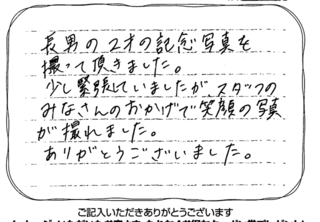 長男の2才の記念写真を
撮って頂きました。
少し緊張していましたが スタッフの
みなさんのおかげで笑顔の写真
が撮れました。
ありがとうございました。
ご記入いただきありがとうございます